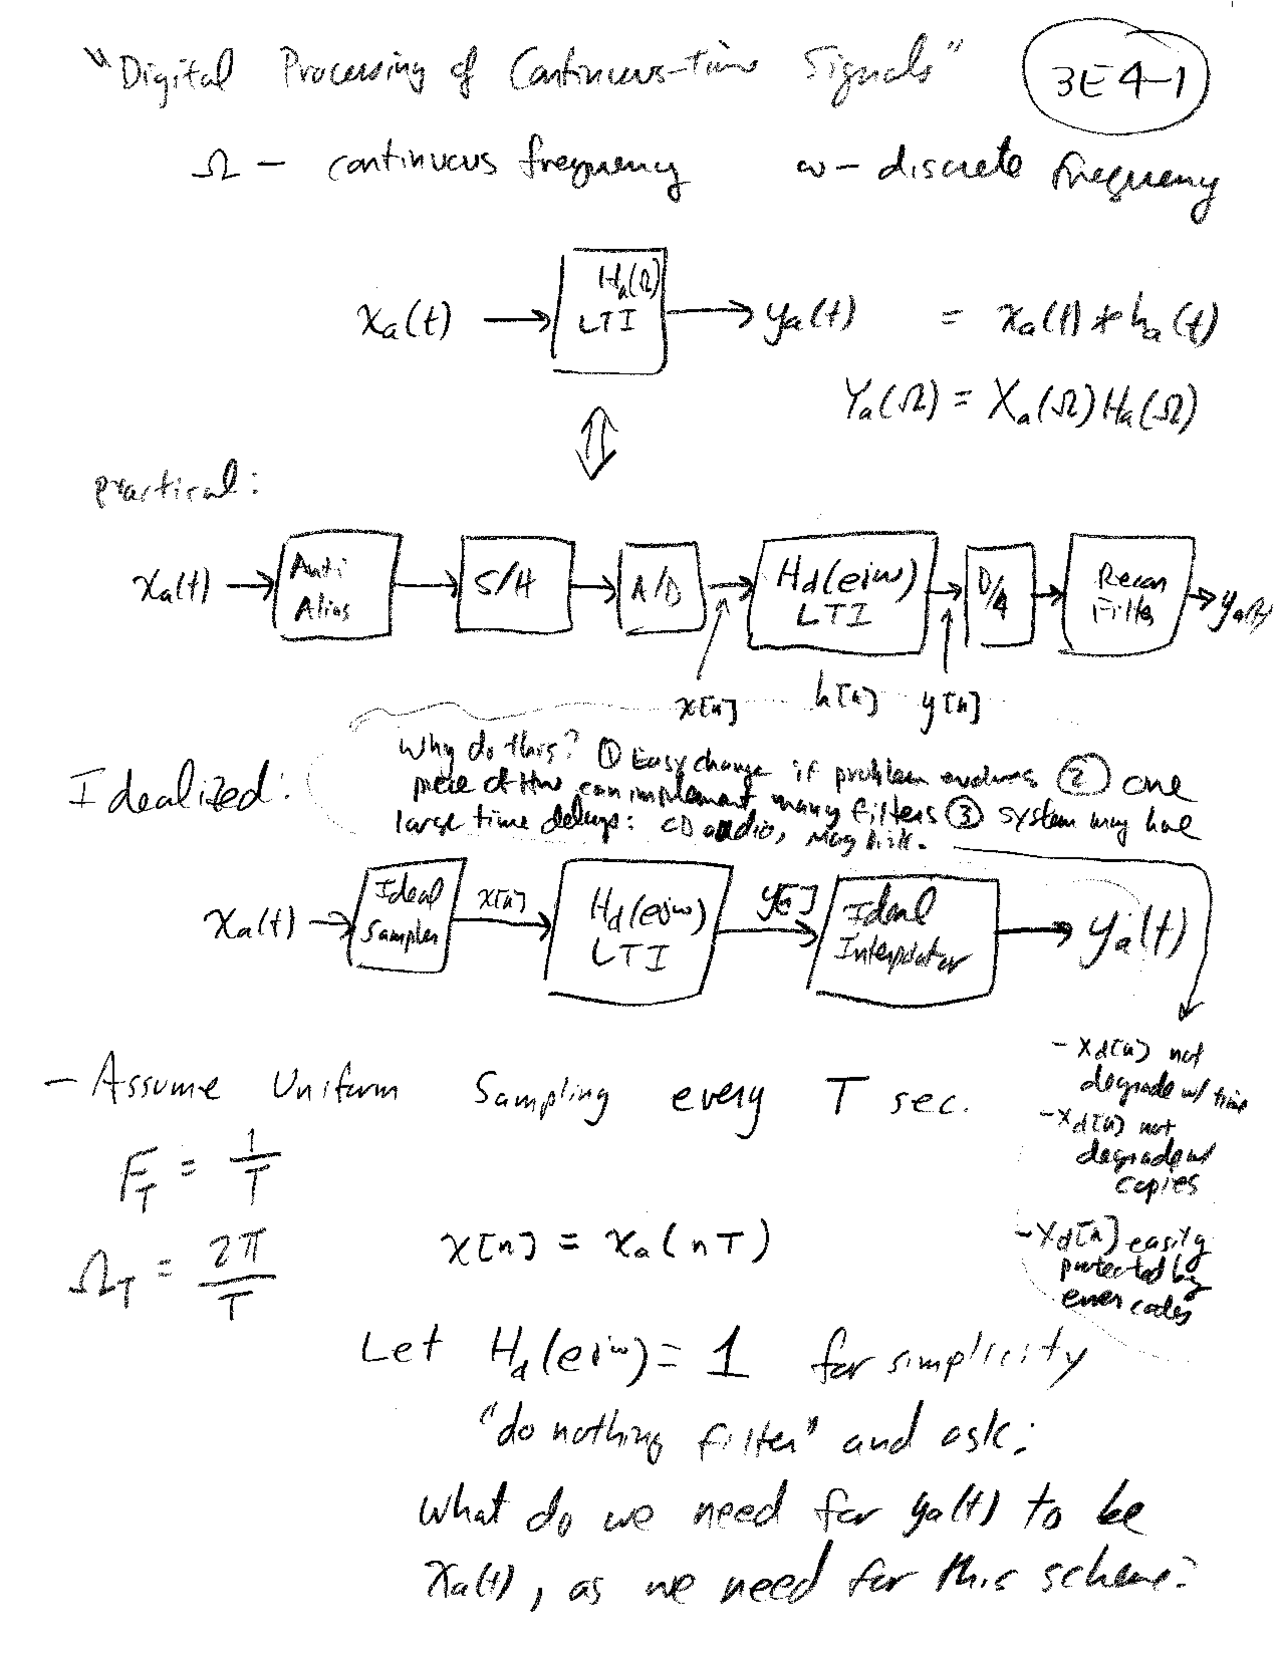 "Digital Processing of Continuous-time Signals" 3E4-1
Ω – continuous frequency ω – discrete frequency
xa(t) → Ha(Ω) LTI → ya(t) = xa(t) * ha(t)
Ya(Ω) = Xa(Ω) Ha(Ω)
practical:
xa(t) → Anti Alias → S/H → A/D → Hd(ejω) LTI → D/A → Recon Filter → ya(t)
x[n] h[n] y[n]
Why do this? ① Easy change if problem evolves ② one
Idealized: piece of HW can implement many filters ③ system may have
large time delays: CD audio, Mag disk.
xa(t) → Ideal Sampler x[n] → Hd(ejω) LTI y[n] → Ideal Interpolator → ya(t)
- xd[n] not
degrade w/ time
- xd[n] not
degrade w/
copies
- xd[n] easily
protected by
error codes
– Assume Uniform Sampling every T sec.
FT = 1/T
ΩT = 2π/T
x[n] = xa(nT)
Let Hd(ejω) = 1 for simplicity
"do nothing filter" and ask:
What do we need for ya(t) to be
xa(t), as we need for this scheme?